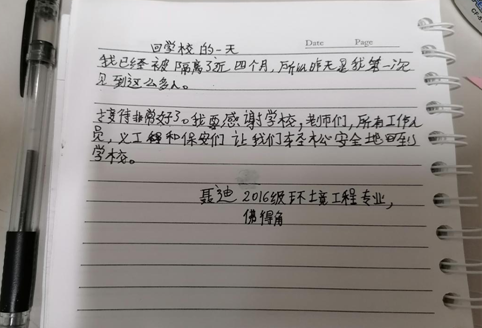 回学校的一天
Date Page
我已经被隔离了近四个月，所以昨天是我第一次
见到这么多人。
接待非常好了。我要感谢学校，老师们，所有工作人
员，义工程和保安们 让我们轻松安全地回到
学校。
聂迪 2016级环境工程专业，
佛得角